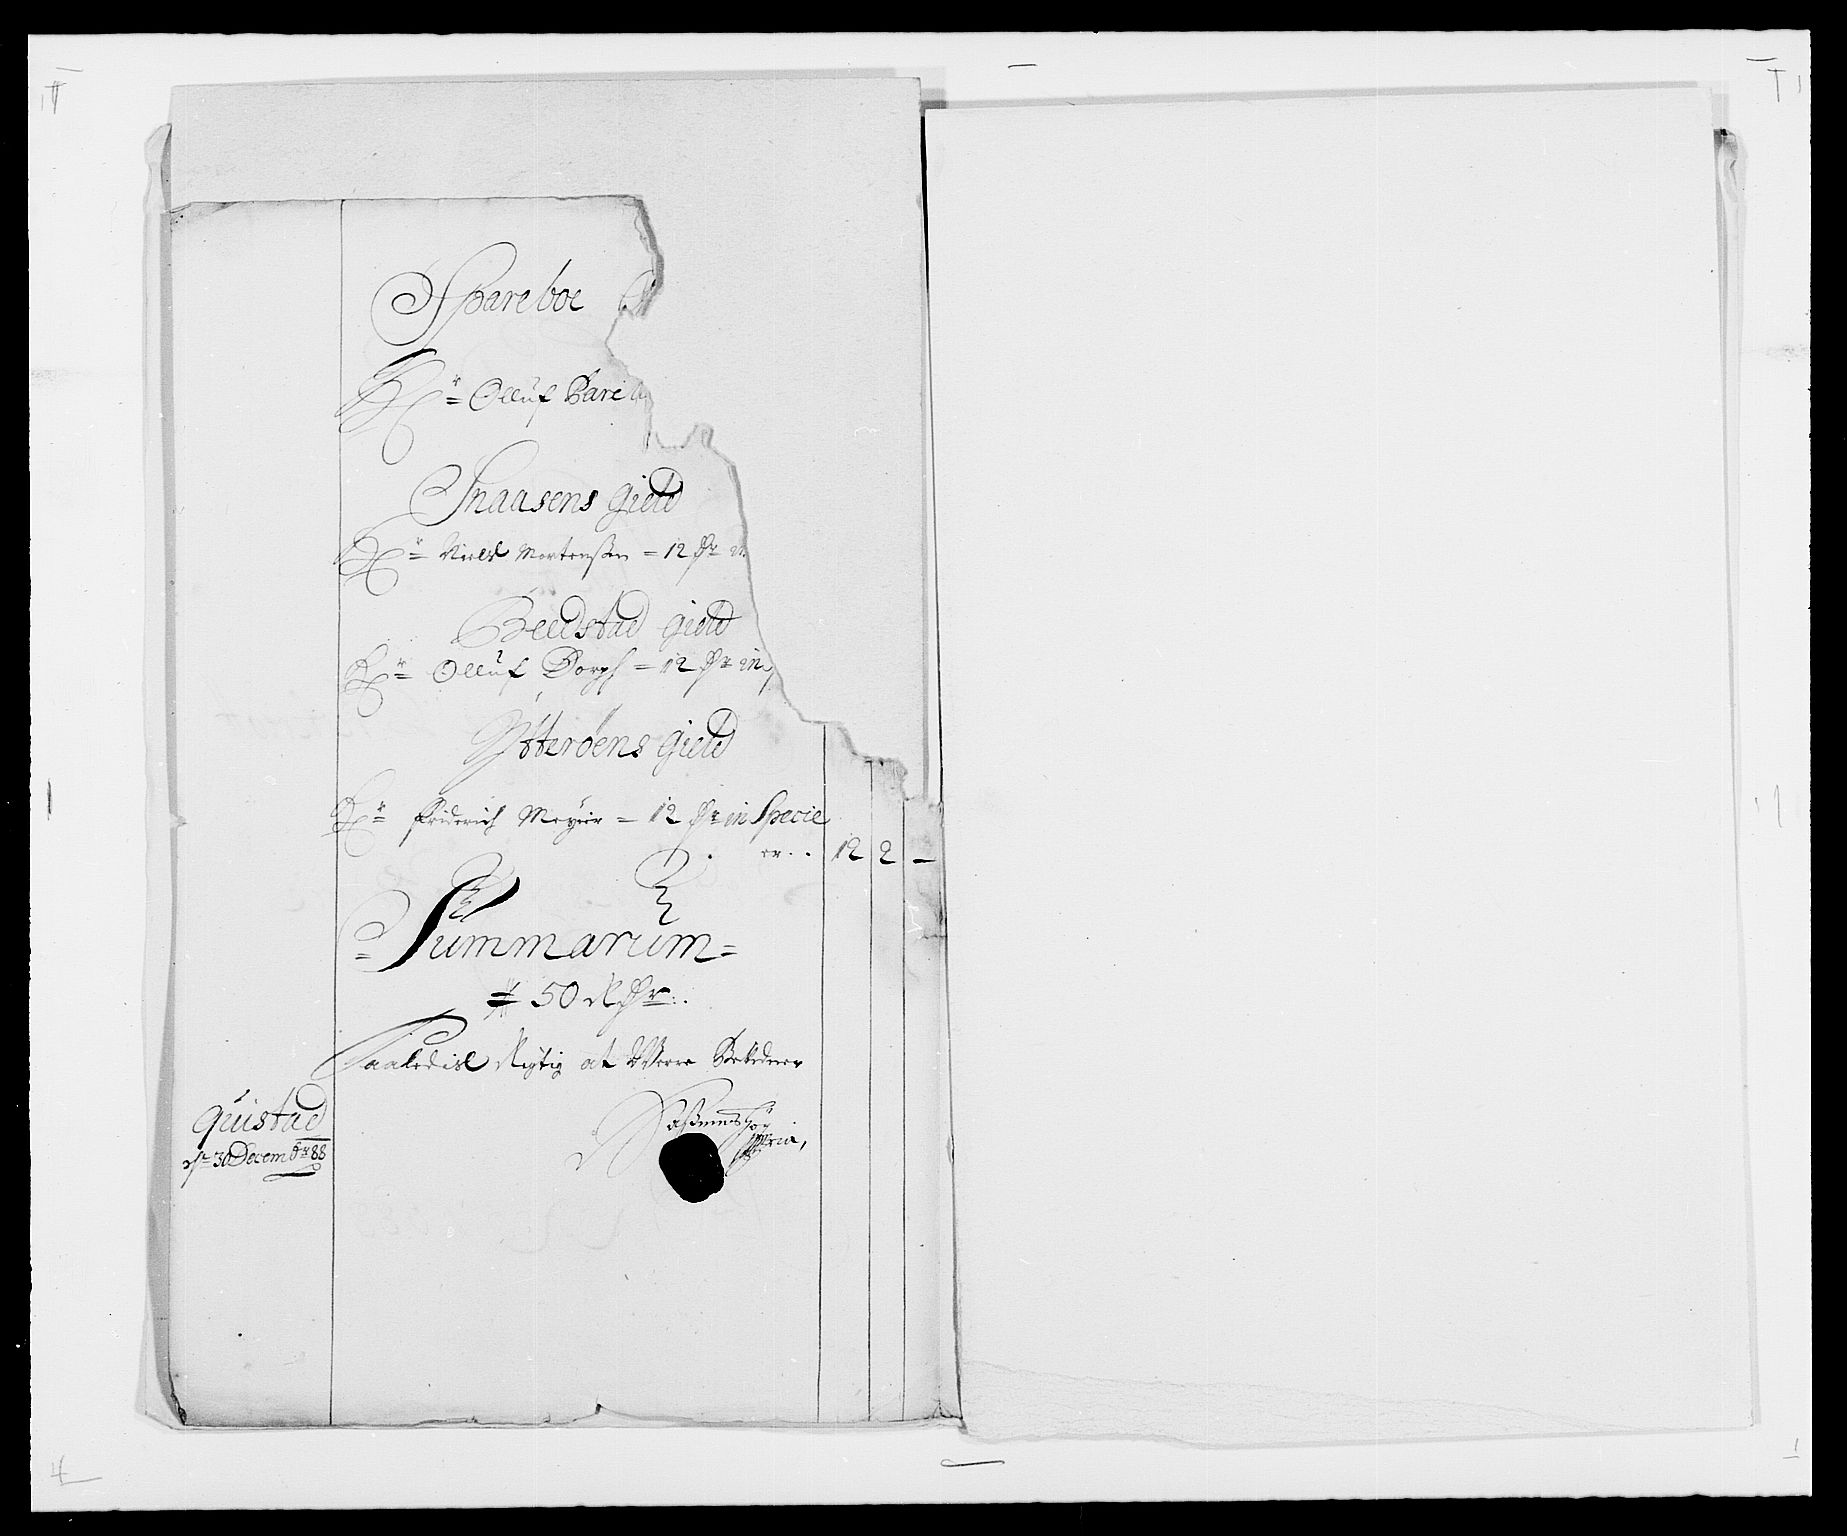 Spareboe
Hr Olluf Bare
Snaasens gield
Hr Niels Mortenßen = 12 Dr in
Beedstad gield
Hr Olluf Dorph = 12 Dr in
Ytterøens gield
Hr Friderich Meyer = 12 Dr in Specie
er . . 12 2 —
Summarum =
50 RDr:
Saaledis Rigtig at Were Bekiender
Quistad
dn 30 Decembr 88